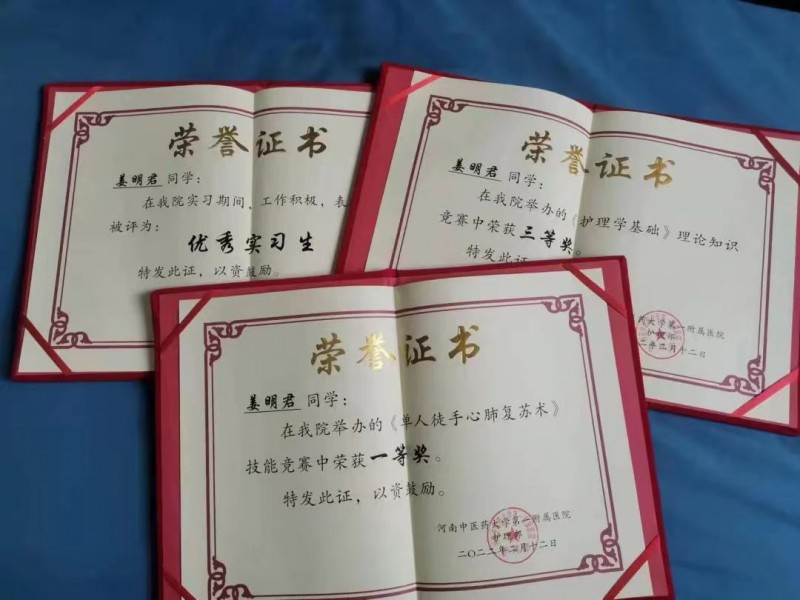 荣誉证书
姜明君 同学:
在我院实习期间,工作积极,表
被评为:
优秀实习生
特发此证,以资鼓励。
荣誉证书
姜明君 同学:
在我院举办的《护理学基础》理论知识
竞赛中荣获三等奖。
特发此证
药大学第一附属医院
护理部
二年二月十二日
荣誉证书
姜明君 同学:
在我院举办的《单人徒手心肺复苏术》
技能竞赛中荣获一等奖。
特发此证,以资鼓励。
河南中医药大学第一附属医院
护理部
二〇二二年二月十二日